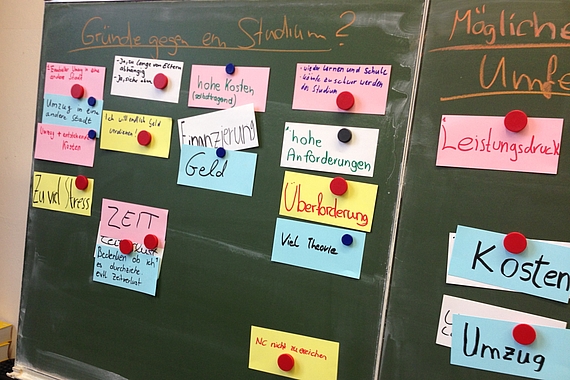 Gründe gegen ein Studium?
Umzug in eine
andere Stadt
Umzug in eine
andere Stadt
Umzug + entstehende
Kosten
Zu viel Stress
- Ja, zu lange von Eltern
abhängig
Ich will endlich Geld
verdienen!
ZEIT
Bedenken ob ich
es durchziehe.
evtl. Zeitverlust
hohe Kosten
(selbsttragend)
Finanzierung
Geld
- wieder Lernen und Schule
- könnte zu schwer werden
im Studium
hohe
Anforderungen
Überforderung
Viel Theorie
NC nicht zu erreichen
Mögliche
Umfe
Leistungsdruck
Kosten
Umzug